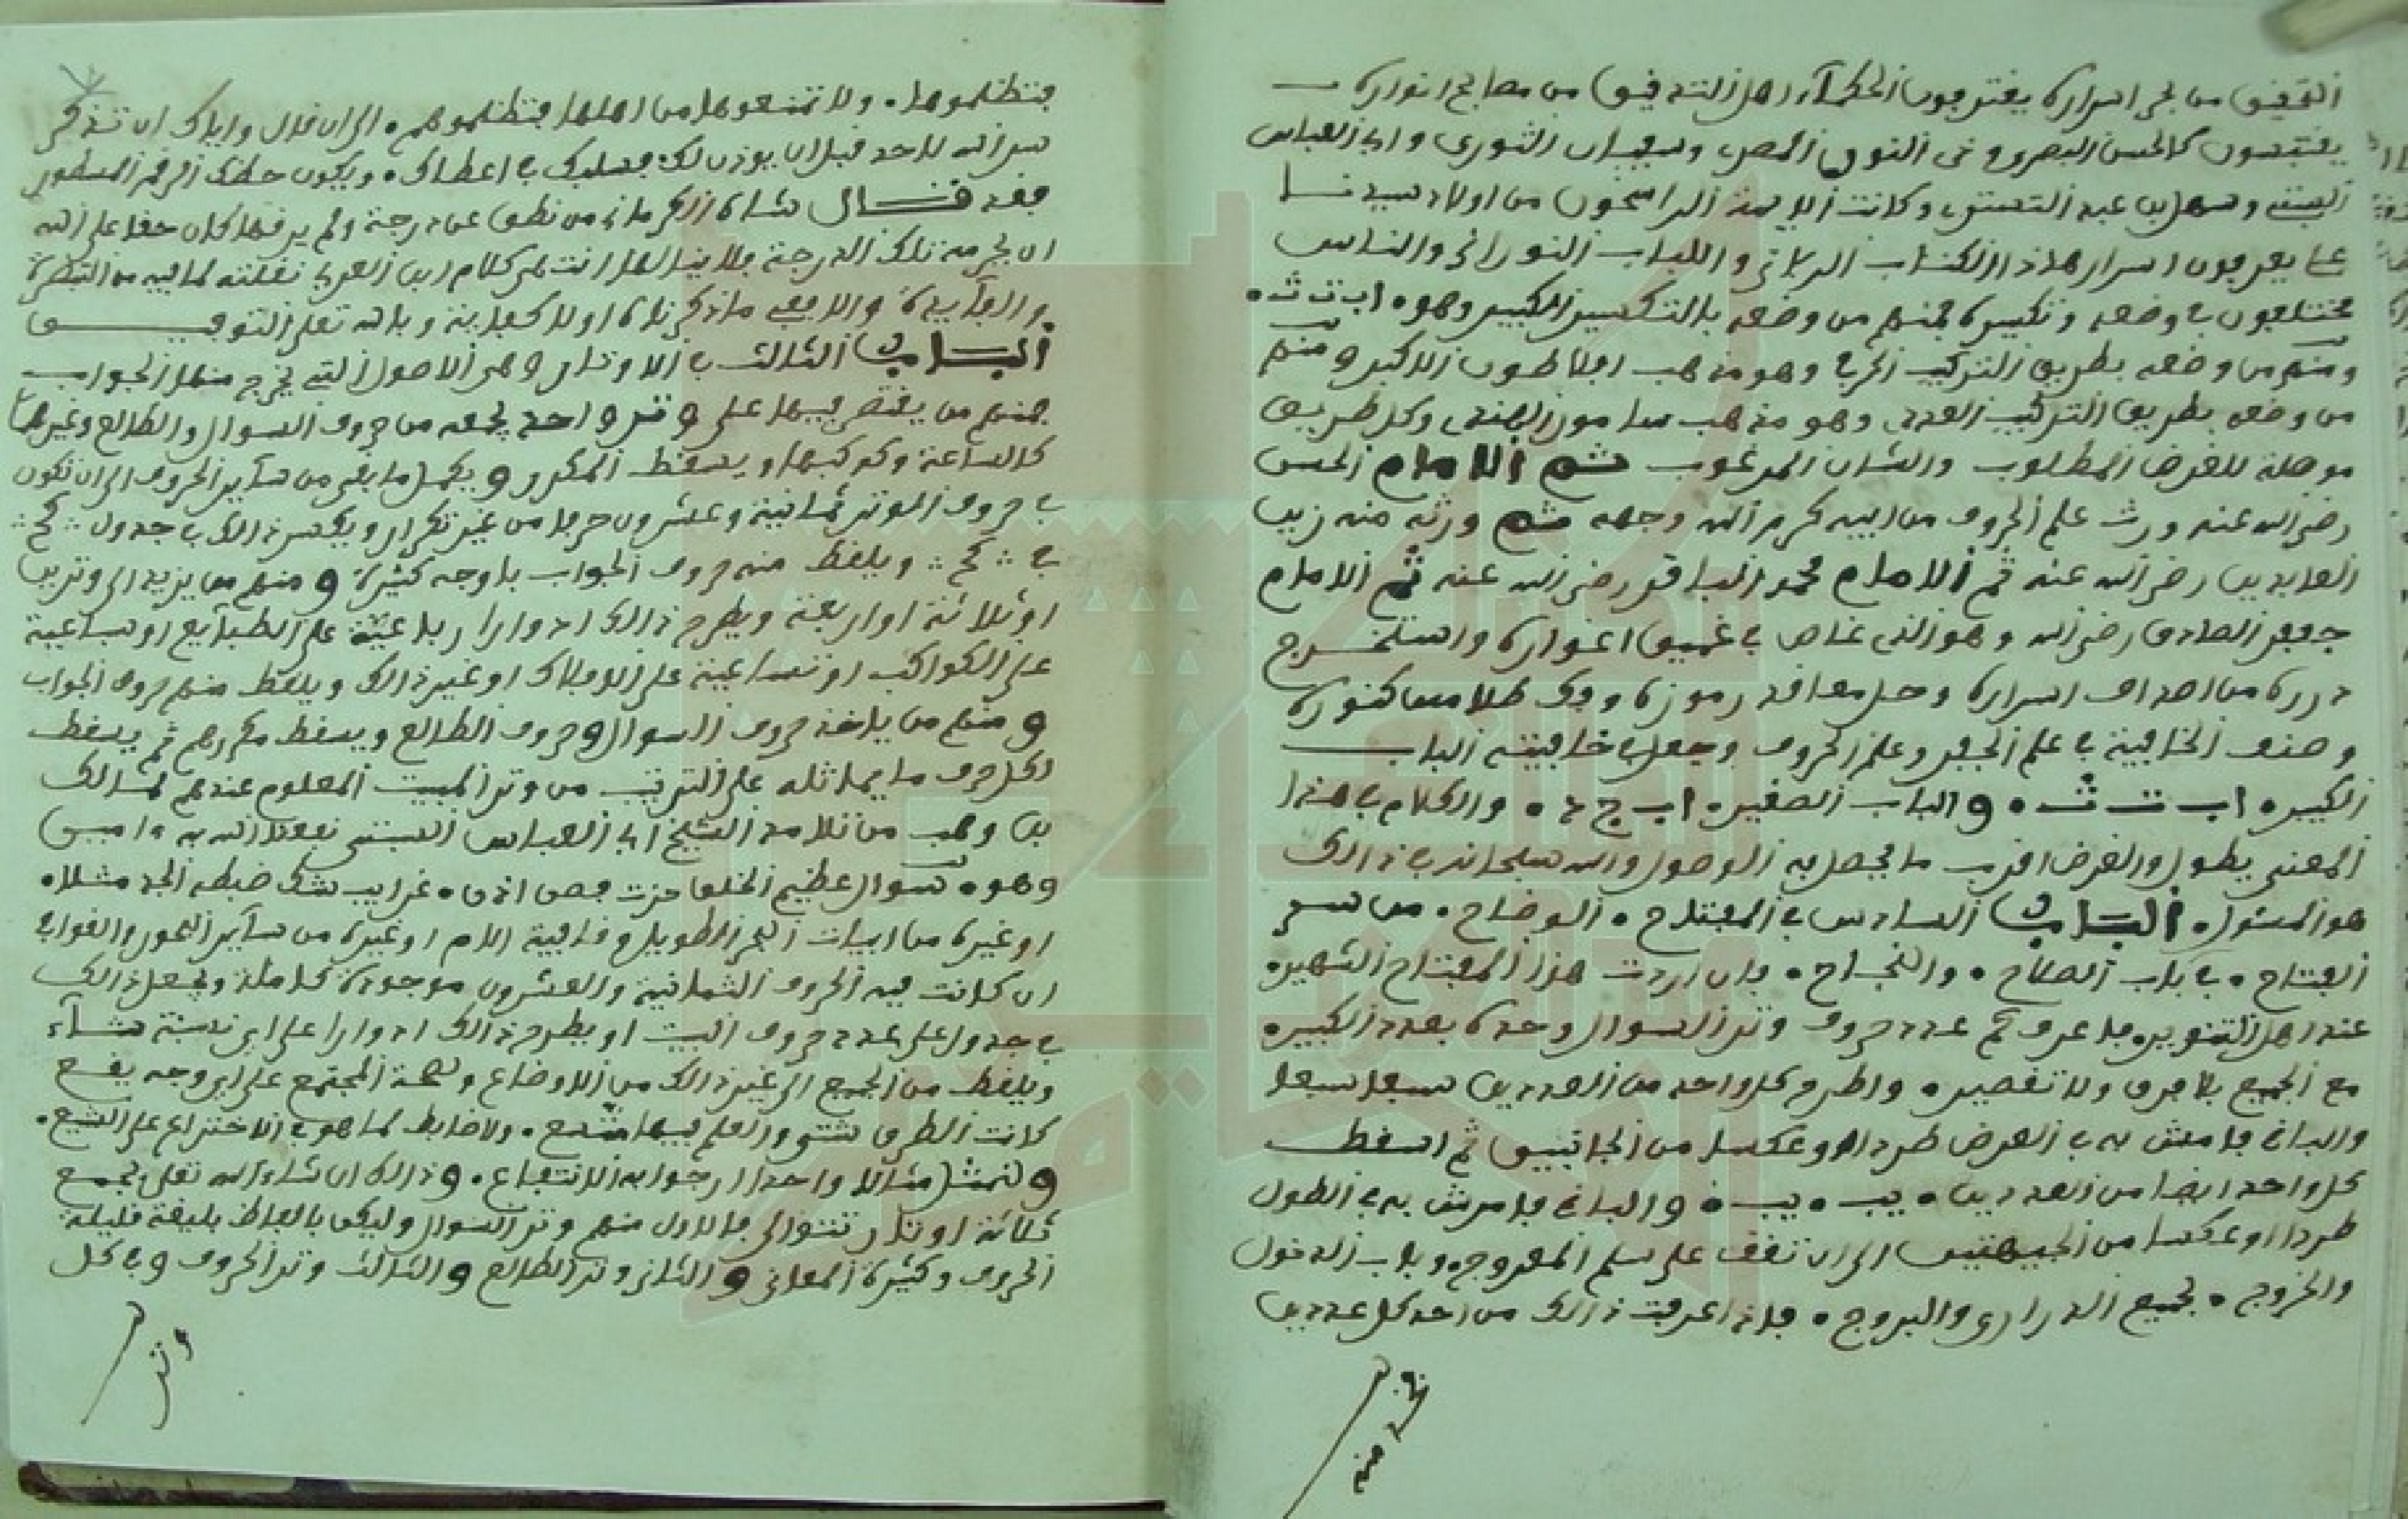 التحقيق من بحر اسراره يغترفون الحكماء اهل التدقيق من مصابح انواره
يقتبسون كالحسن البصرى وذى النون المصرى وسفيان الثورى وابى العباس
البستى وسهل بن عبد التستوى وكانت الايمة الراسخون من اولاد سيدنا
على يعرفون اسرار هذا الكتاب الربانى واللباب النورانى والناس
مختلفون فى وضعه وتكسيره فمنهم من وضعه بالتكسير الكبير وهو • ا ب ت ث •
ومنهم من وضعه بطريق التركيب الحرفى وهو مذهب افلاطون الاكبر ومنهم
من وضعه بطريق التركيب العددى وهو مذهب سامور الهندى وكل طريق
موصلة للغرض المطلوب والشان المرغوب ثم الامام الحسن
رضى الله عنه ورث علم الحروف من ابيه كرم الله وجهه ثم ورثه منه زين
العابدين رضى الله عنه ثم الامام محمد الباقر رضى الله عنه ثم الامام
جعفر الصادق رضى الله وهو الذى غاص فى عميق اغواره واستخرج
درره من اصداف اسراره وحل معاقد رموزه وفك طلاسم كنوزه
وصنف الخافية فى علم الجفر وعلم الحروف وجعل فى خافيته الباب
الكبير • ا ب ت ث • والباب الصغير • ا ب ج د • والكلام فى هذا
المعنى يطول والغرض اقرب ما يحصل به الوصول والله سبحانه فى ذالك
هو المسئول • الباب السادس فى المفتاح • الوضاح • من سر
الفتاح • فى باب الصلاح • والنجاح • فان اردت هذا المفتاح الشهير •
عند اهل التنوير • فاعرف ثم عدد حروف وتر السوال وحده بعدد الكبير •
مع الجميع بلا فرق ولا تقصير • واطرح كل واحد من العددين سبعا سبعا
والباقى فامش به فى العرض طردا او عكسا من الجانبين ثم اسقط
كل واحد ايضا من العددين • يب • يب • والباقى فامش به فى الطول
طردا او عكسا من الجيهتين الى ان تقف على سلم المعروج • وباب الدخول
والخروج • بجميع الدرارى والبروج • فاذا عرفت ذالك من احد كل عددين
منه
فتظلموها • ولا تمنعوها من اهلها فتظلموهم • الى ان قال واياك ان تذكر
سر الله لاحد قبل ان يوذن لك فسلبك فى اعطاك • ويكون حظك الرقم المسطور
فقد قال شاه الكرمانى من نطق عن درجة ولم يرقها كان حقا على الله
ان يحرمه تلك الدرجة فلا ينالها انتهى كلام ابن العربى نقلته لما فيه من التبصرة
والفايدة واللايق ما ذكرناه اولا كفاية وبالله تعلى التوفيق
الباب الثالث فى الاوتار وهى الاصول التى يخرج منها الجواب
فمنهم من يقتصر فيها على وتر واحد يجمعه من حروف السوال والطالع وغيرها
كالساعة وكوكبها ويسقط المكرر ويكمل ما بقى من ساير الحروف الى ان تكون
فى حروف الوتر ثمانية وعشرون حرفا من غير تكرار ويكسر ذالك فى جدول كح
فى كح ويلقط منه حروف الجواب باوجه كثيرة ومنهم من يزيد الى وترين
او ثلاثة او اربعة ويطرح ذالك ادوارا رباعية على الطبايع او سباعية
على الكواكب او تساعية على الافلاك او غير ذالك ويلقط منهم حروف الجواب
ومنهم من ياخذ حروف السوال وحروف الطالع ويسقط مكررهم ثم يسقط
لكل حرف ما يماثله على الترتيب من وتر البيت المعلوم عندهم لمالك
بن وهب من تلامذ الشيخ ابى العباس السبتى نفعنا الله به ءامين
وهو • سوال عظيم الخلق حزت فصن اذن • غرايب شك ضبطه الجد مثلا •
او غيره من ابيات البحر الطويل وقافية اللام او غيره من ساير البحور والقوافى
ان كانت فيه الحروف الثمانية والعشرون موجودة كاملة ويجعل ذالك
فى جدول على عدد حروف البيت او يطرح ذالك ادوارا على اى نسبة شاء
ويلقط من الجميع الى غير ذالك من الاوضاع وهمة المجتمع على اى وجه يقع
كانت الطرق شتى والعلم فيها متسع • ولا ضابط لما هو فى الاختراع على التسع •
ونمثل مثالا واحدا ارجوا به الانتفاع • وذالك ان شاء الله تعلى بجمع
ثلاثة اوتار تتوالى فالاول منهم وتر السوال وليكن بالفاظ بليغة قليلة
الحروف وكثيرة المعانى والثانى وتر الطالع والثالث وتر الحروف وفى كل
وتر